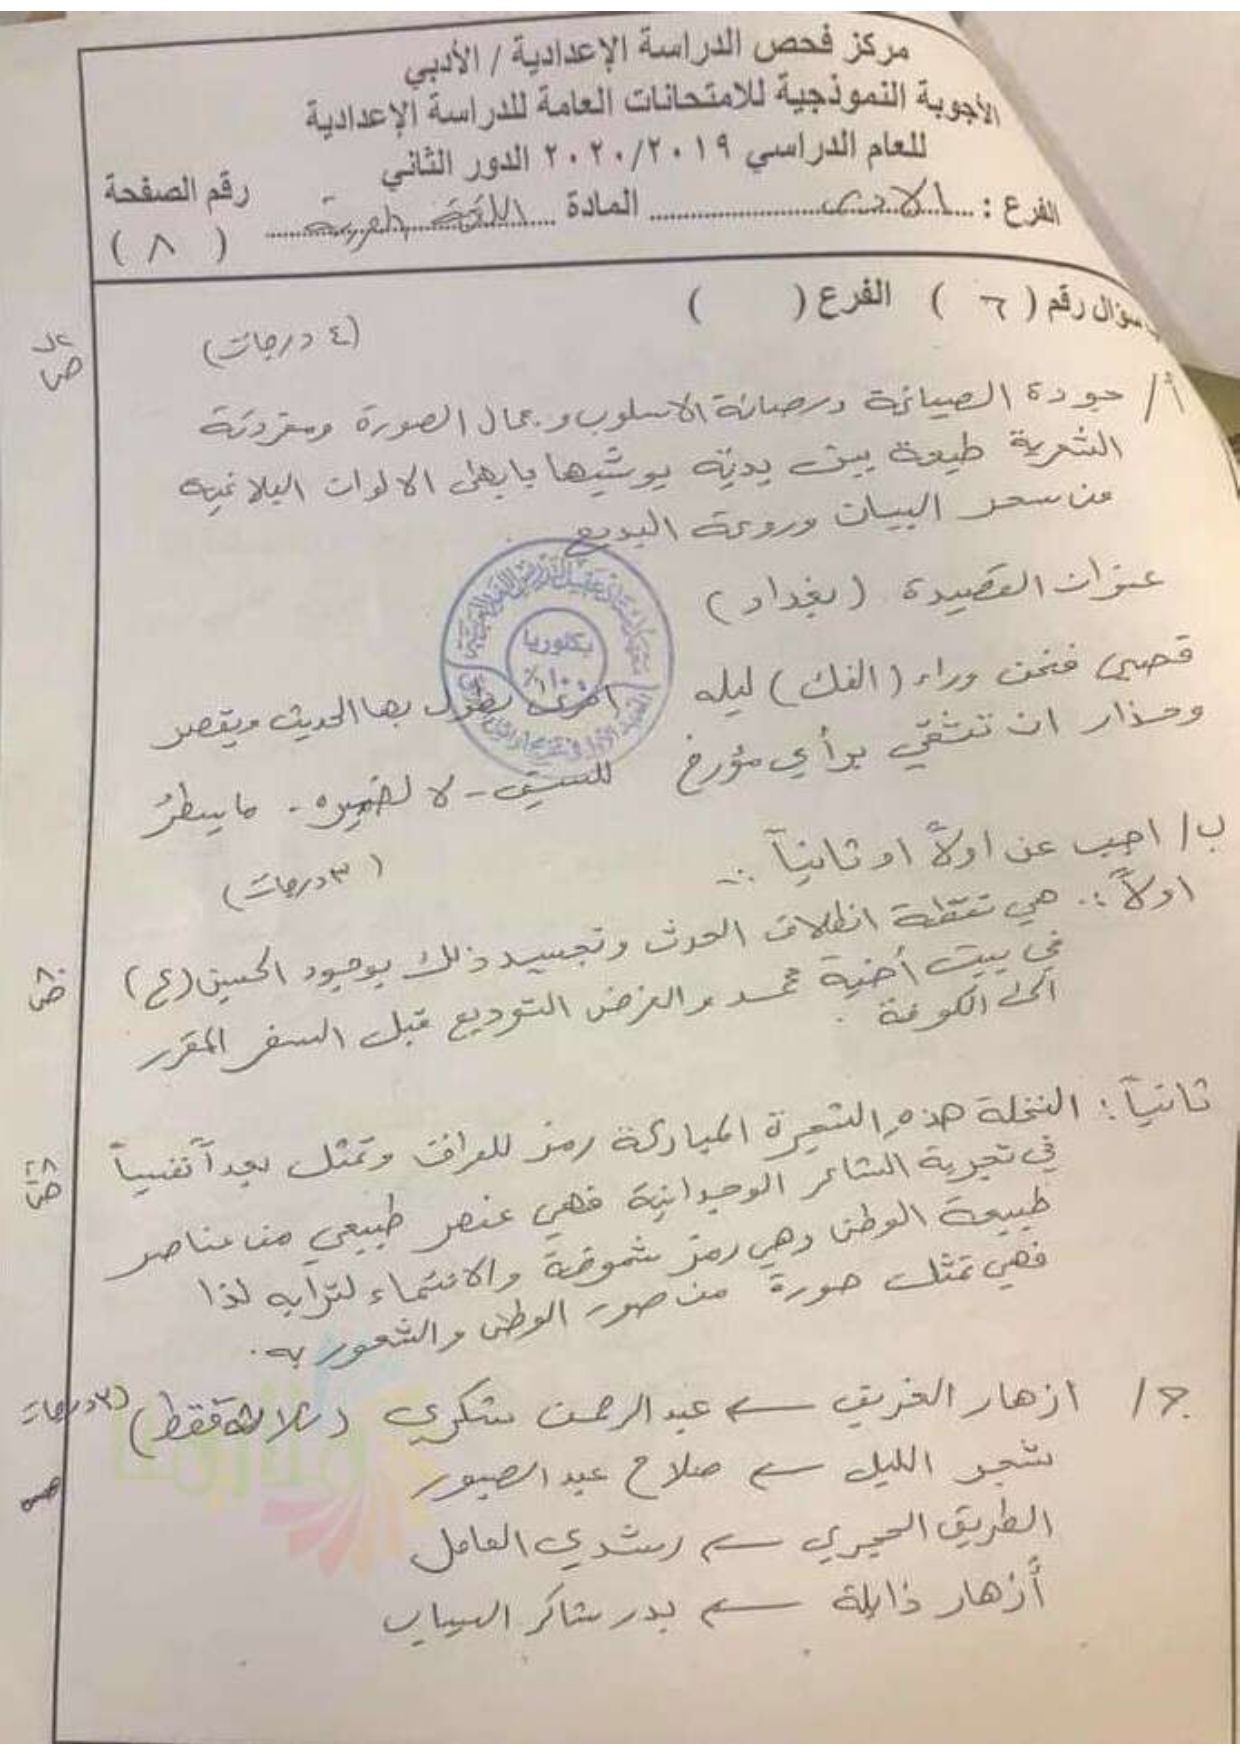 مركز فحص الدراسة الإعدادية / الأدبي
الأجوبة النموذجية للامتحانات العامة للدراسة الإعدادية
للعام الدراسي ٢٠٢٠/٢٠١٩ الدور الثاني
رقم الصفحة
الفرع : الادبي المادة اللغة العربية
( ٨ )
سؤال رقم ( ٦ ) الفرع ( )
(٤ درجات)
أ/ جودة الصياغة ورصانة الاسلوب وجمال الصورة ومفردته
الشعرية طيعة بين يديه يوشيها بابهى الالوان البلاغية
من سحر البيان وروعة البديع
عنوان القصيدة (بغداد)
قصي فنحن وراء (الفك) ليله اخرى يطول بها الحديث ويقصر
وحذار ان تثقي برأي مؤرخ للسيف - لا لضميره - ما يسطرُ
ب/ اجب عن اولاً او ثانياً :
(٣ درجات)
اولاً : هي نقطة انطلاق الحدث وتجسيد ذلك بوجود الحسين (ع)
في بيت أخيه محمد والغرض التوديع قبل السفر المقرر
الى الكوفة .
ثانياً : النخلة هذه الشجرة المباركة رمز للعراق وتمثل بعداً نفسياً
في تجربة الشاعر الوجدانية فهي عنصر طبيعي من عناصر
طبيعة الوطن وهي رمز شموخه والانتماء لترابه لذا
فهي تمثل صورة من صور الوطن والشعور به .
ج/ ازهار الخريف عبد الرحمن شكري (ثلاثة فقط) (٣ درجات)
شجر الليل صلاح عبد الصبور
الطريق الحجري رشدي العامل
أزهار ذابلة بدر شاكر السياب
بكلوريا
١٠٠٪
ملازمنا